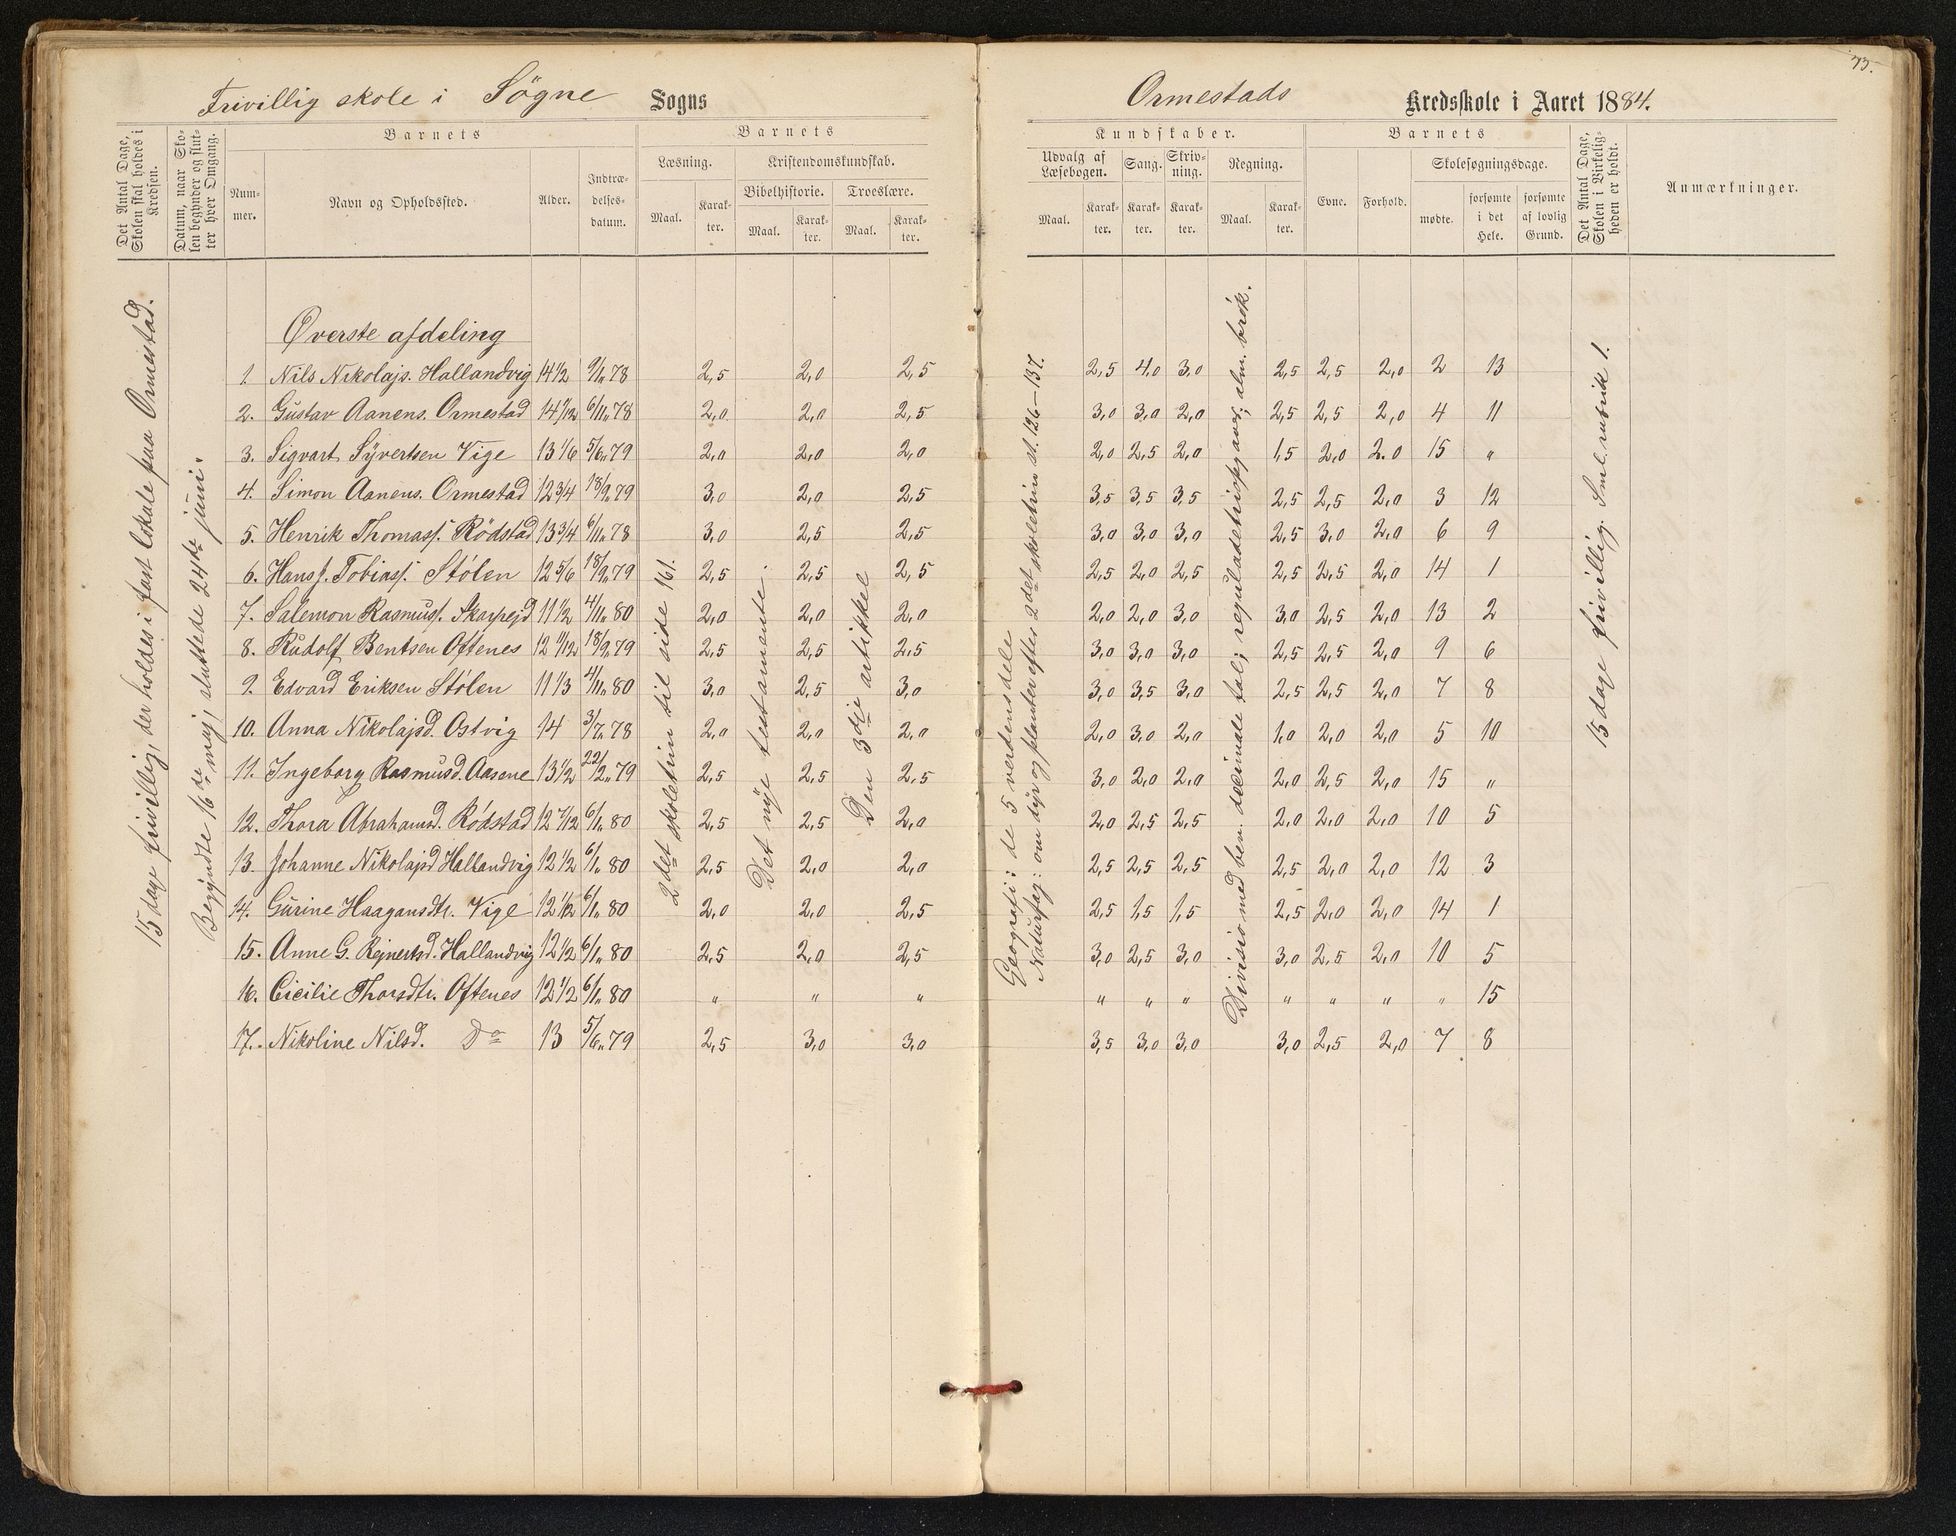 75.
Frivillig skole i Søgne Sogns
Ormestads Kredsskole i Aaret 1884.
Det Antal Dage, Skolen skal holdes i Kredsen.
Datum, naar Skolen begynder og slutter hver Omgang.
Barnets
Nummer.
Navn og Opholdssted.
Alder.
Indtrædelsesdatum.
Barnets
Læsning.
Maal.
Karakter.
Kristendomskundskab.
Bibelhistorie.
Maal.
Karakter.
Troeslære.
Maal.
Karakter.
Kundskaber.
Udvalg af Læsebogen.
Maal.
Karakter.
Sang.
Karakter.
Skrivning.
Karakter.
Regning.
Maal.
Karakter.
Barnets
Evne.
Forhold.
Skolesøgningsdage.
mødte.
forsømte i det Hele.
forsømte af lovlig Grund.
Det Antal Dage, Skolen i Virkeligheden er holdt.
Anmærkninger.
15 dage frivillig, der holdes i fast lokale paa Ormestad.
Begyndte 16de maj, sluttede 24de juni.
2det skoletrin til side 161.
Det nye testamente.
Den 3dje artikkel
Geografi: de 5 verdensdele
Naturfag: om dyr og planter efter 2det skoletrin st. 126–137.
Division med ben. decimale tal; reguladetriopgaver; alm. brøk.
15 dage frivillig. Sml. rubrik 1.
Øverste afdeling
1. Nils Nikolajs. Hallandvig 14 1/2 9/1. 78 2,5 2,0 2,5 2,5 4,0 3,0 2,5 2,5 2,0 2 13
2. Gustav Aanens. Ormestad 14 1/12 6/11. 78 2,0 2,0 2,5 3,0 3,0 2,0 2,5 2,5 2,0 4 11
3. Sigvart Syvertsen Vige 13 1/6 5/6. 79 2,0 2,0 2,0 2,0 2,5 2,0 1,5 2,0 2.0 15 "
4. Simon Aanens. Ormestad 12 3/4 18/9. 79 3,0 2,0 2,5 3,5 3,5 3,5 2,5 2,5 2,0 3 12
5. Henrik Thomass. Rødstad 13 3/4 6/11. 78 3,0 2,5 2,5 3,0 3,0 3,0 2,5 3,0 2,0 6 9
6. Hans J. Tobiass. Stølen 12 5/6 18/9. 79 2,5 2,5 2,5 2,5 2,0 2,5 2,5 2,5 2,0 14 1
7. Salemon Rasmuss. Skarpejd 11 1/2 4/11. 80 2,0 2,0 2,0 2,0 2,0 3,0 3,0 2,5 2,0 13 2
8. Rudolf Bentsen Oftenes 12 11/12 18/9. 79 2,5 2,5 2,5 3,0 3,0 3,0 2,5 2,5 2,0 9 6
9. Edvard Eriksen Stølen 11 1/3 4/11. 80 3,0 2,5 3,0 3,0 3,5 3,0 2,5 2,5 2,0 7 8
10. Anna Nikolajsd. Ostvig 14 3/7. 78 2,0 2,0 2,0 2,0 3,0 2,0 1,0 2,0 2,0 5 10
11. Ingeborg Rasmusd. Aasene 13 1/2 22/2. 79 2,5 2,5 2,5 3,0 2,0 2,0 2,0 2,5 2,0 15 "
12. Thora Abrahamsd. Rødstad 12 7/12 6/1. 80 2,5 2,5 2,0 2,0 2,5 2,5 2,0 2,0 2,0 10 5
13. Johanne Nikolajsd Hallandvig 12 1/2 6/1. 80 2,5 2,0 2,0 2,5 2,5 2,5 2,5 2,0 2,0 12 3
14. Gurine Haagansdtr. Vige 12 1/12 6/1. 80 2,0 2,0 2,5 2,5 1,5 1,5 2,5 2,0 2,0 14 1
15. Anne G. Rejnertsd. Hallandvig 12 1/2 6/1. 80 2,5 2,0 2,5 3,0 2,5 3,0 3,0 2,5 2,0 10 5
16. Cicilie Thorsdtr. Oftenes 12 1/2 6/1. 80 " " " " " " " " " " 15
17. Nikoline Nilsd. Do 13 5/6. 79 2,5 3,0 3,0 3,5 3,0 3,0 3,0 2,5 2,0 7 8